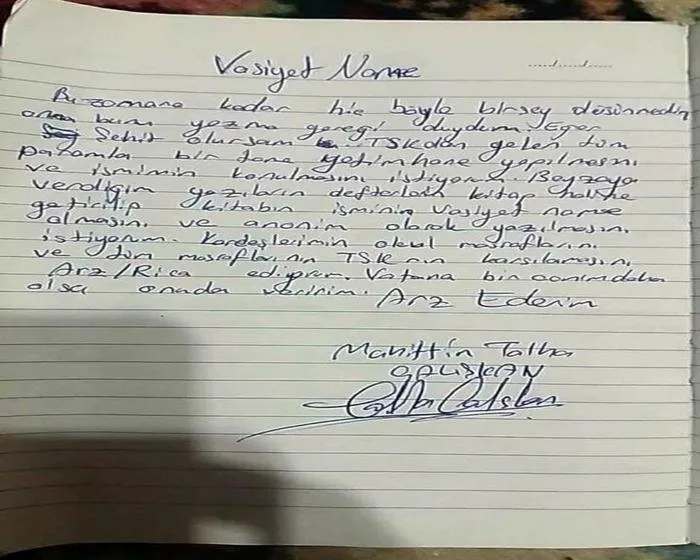 Vasiyet Name
...../...../.....
Bu zamana kadar hic böyle birşey düşünmedim
ama bunu yazma gereği duydum. Eğer
Şehit olursam TSKdan gelen tüm
paramla bir tane yetimhane yapılmasını
ve ismimin konulmasını istiyorum. Beyzaya
verdiğim yazıların defterlerin kitap haline
getirilip kitabın isminin vasiyet name
olmasını. ve anonim olarak yazılmasını
istiyorum. Kardeşlerimin okul masraflarını
ve tüm masraflarının TSK nın karşılamasını
Arz/Rica ediyorum. Vatana bin canım daha
olsa onada veririm. Arz Ederim
Mahittin Talha
ÇALIŞKAN